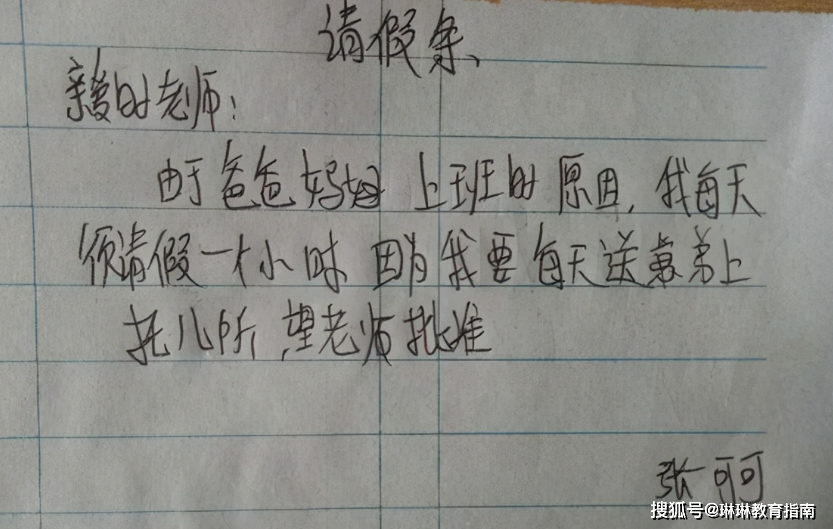 请假条
亲爱的老师：
由于爸爸妈妈上班的原因，我每天
须请假一个小时因为我要每天送弟弟上
托儿所，望老师批准
张可可
搜狐号@琳琳教育指南